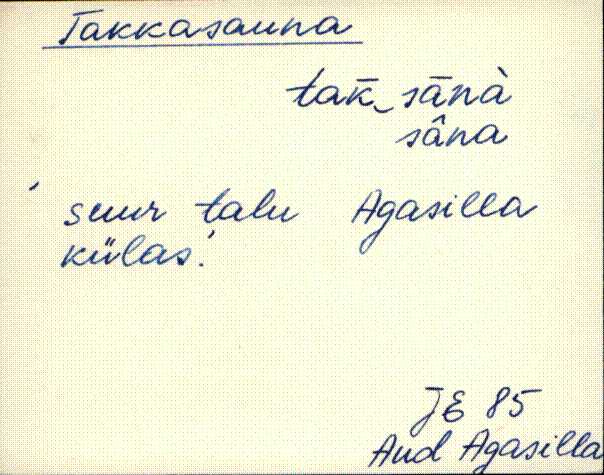 Takkasauna
tak̄‿sānà
sâna
'suur talu Agasilla
külas.'
JE 85
Aud Agasilla